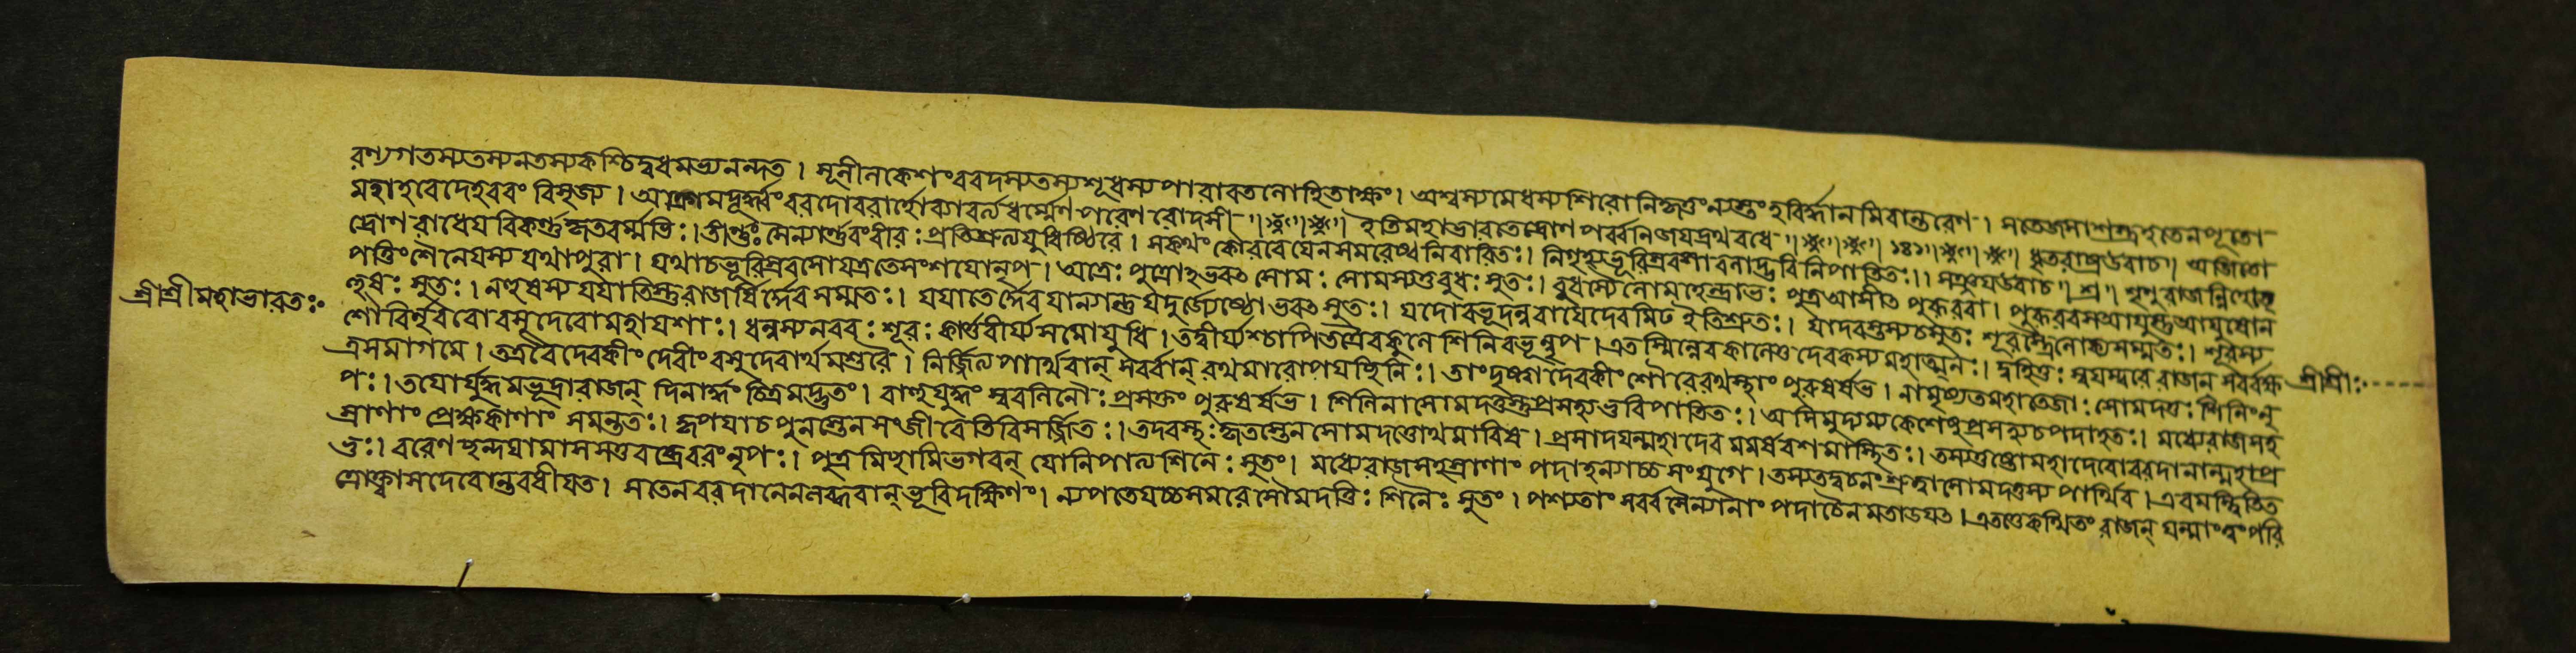 রণ্যগতস্যতস্যনতস্যকশ্চিদ্বধমভ্যনন্দত । সূনীনকেশংববদস্যতস্যশূরস্যপারাবতনোহিতাক্ষং । অশ্বস্যমেধস্যশিরোনিকৃত্তংন্যস্তংহবির্দ্ধানমিবান্তরেণ । সতেজসাশস্ত্রহতেনপূতো
মহাহবেদেহববং বিসৃজ্য । আক্রামদূর্দ্ধ্বংবরদোবরার্হোব্যাবর্ত্যধর্ম্মেণপরেণ রোদসী ॥ ইতিমহাভারতেদ্রোণপবর্বনিজয়দ্রথবধে ॥ ১৪১॥ ধৃতরাষ্ট্রউবাচ॥ অজিতো
দ্রোণরাধেযবিকর্ণকৃতবর্ম্মভিঃ । তীর্ণঃ সৈন্যার্ণবংবীরঃ প্রতিশ্রুত্যযুধিষ্ঠিরে । সকথং কৌরবেযেনসমরেষ্বনিবারিতঃ । নিগৃহ্যভূরিশ্রবসাবলাদ্ভুবিনিপাতিতঃ ।। সঞ্জয়উবাচ॥ শৃণুরাজন্নিহোৎ
পত্তিংশৈনেযস্য যথাপুরা । যথাচভূরিশ্রবসোযত্রতেসংশযোনৃপ । অত্রেঃ পুত্রোহভবৎ সোমঃ সোমস্যতুবুধঃ সুতঃ । বুধস্যৈনোমহেন্দ্রাভঃ পুত্রআসীৎ পুরূরবা । পুরূরবসআযুস্তুআযুষোন
হুষঃ সুতঃ । নহুষস্য যযাতিস্তুরাজর্ষির্দেবসম্মতঃ । যযাতের্দেবযান্যান্তু যদুর্জ্যেষ্ঠো।ভবৎ সুতঃ । যদোবভূদন্ববাযেদেবমিঢ ইতিশ্রুতঃ । যাদবস্তস্যচসুতঃ শূরস্ত্রৈলোক্যসম্মতঃ । শূরস্য
শৌরিনৃববোবসুদেবোমহাযশাঃ । ধনুষ্যনববঃ শূরঃ কার্ত্তবীর্য্যসমোযুধি । তদ্বীর্য্যশ্চাপিতত্রৈবকুনেশিনিবভূন্নৃপ । এতস্মিন্নেবকানেতু দেবকস্য মহাত্মনঃ । দুহিতুঃ স্বযম্বরে রাজন্ সবর্বক্ষ
শ্রীশ্রীমহাভারতঃ
শ্রীশ্রীঃ
ত্রসমাগমে । তত্রবৈদেবকীং দেবীং বসুদেবার্থমাশুবৈ । নির্জ্জিত্য পার্থিবান্ সবর্বান্ রথমারোপযচ্ছিনিঃ । তাংদৃষ্ট্বাদেবকীং শৌরেরথস্থাং পুরুষর্ষভ । নামৃষ্যতমহাতেজাঃ সোমদত্তঃ শিনিংনৃ
পঃ । তযোর্যুদ্ধমভূদ্রাজন্ দিনার্দ্ধং চিত্রমদ্ভুতং । বাহুযুদ্ধং সুবনিনোঃ প্রসক্তং পুরুষর্ষভ । শিনিনাসোমদত্তস্তুপ্রসহ্যভুবিপাতিতঃ । অসিমুদ্যম্যকেশেষুপ্রগৃহ্যচপদাহতঃ । মধ্যেরাজসহ
স্রাণাং প্রেক্ষকাণাং সমন্ততঃ । কৃপযাচ পুনস্তেনসংজীবেতিবিসর্জ্জিতঃ । তদবস্থঃকৃতস্তেনসোমদত্তোথমারিষ । প্রসাদযন্মহাদেবমমর্ষবশমাস্থিতঃ । তস্যতুষ্টোমহাদেবোবরদানান্মহাপ্র
ভুঃ । বরেণচ্ছন্দযামাসসতুবব্রেবরংনৃপঃ । পুত্রমিচ্ছামিভগবন্ যোনিপাত্যশিনেঃ সুতং । মধ্যেরাজসহস্রাণাং পদাহন্যাচ্চ সংযুগে । তস্যতদ্বচনংশ্রুত্বাসোমদত্তস্য পার্থিব । এবমস্ত্বিতিত
ত্রোক্ত্বাসদেবোন্তবধীযত । সতেনবরদানেননব্ধবান্ ভূবিদক্ষিণং । ন্যপাতযচ্চসমরেসৌমদত্তিঃ শিনেঃ সুতং । পশ্যতাং সবর্বসৈন্যানাং পদাচৈনমতাডযৎ । এতত্তেকথিতং রাজন্ যন্মাংত্বংপরি